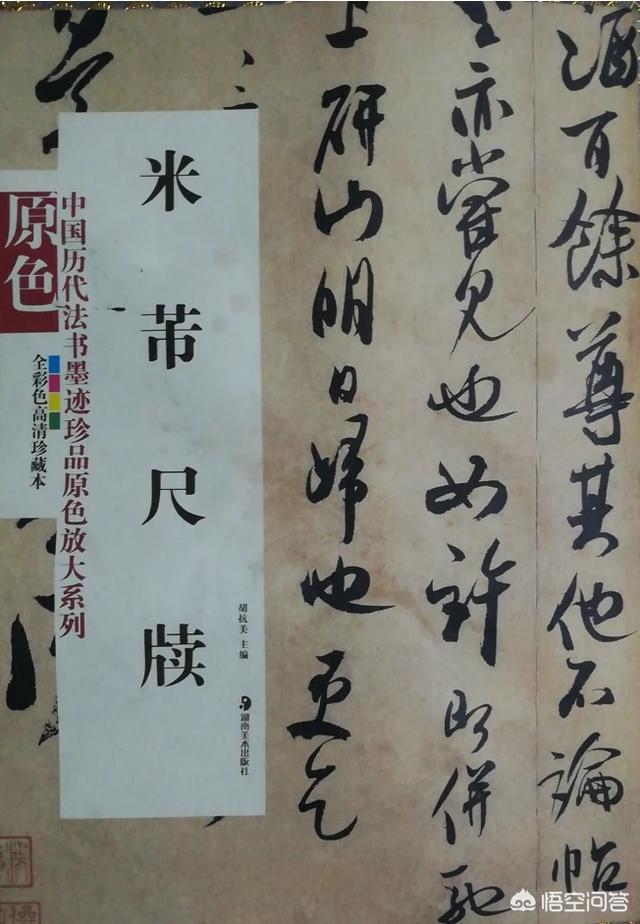 酒百餘尊其他不論帖
亦嘗見也如許即併馳
上研山明日歸也更乞
米芾尺牍
胡抗美 主编
湖南美术出版社
中国历代法书墨迹珍品原色放大系列
原色
全彩色高清珍藏本
悟空问答